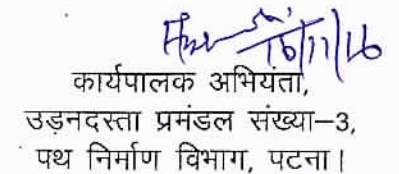 16/11/16
कार्यपालक अभियंता,
उड़नदस्ता प्रमंडल संख्या–3,
पथ निर्माण विभाग, पटना।